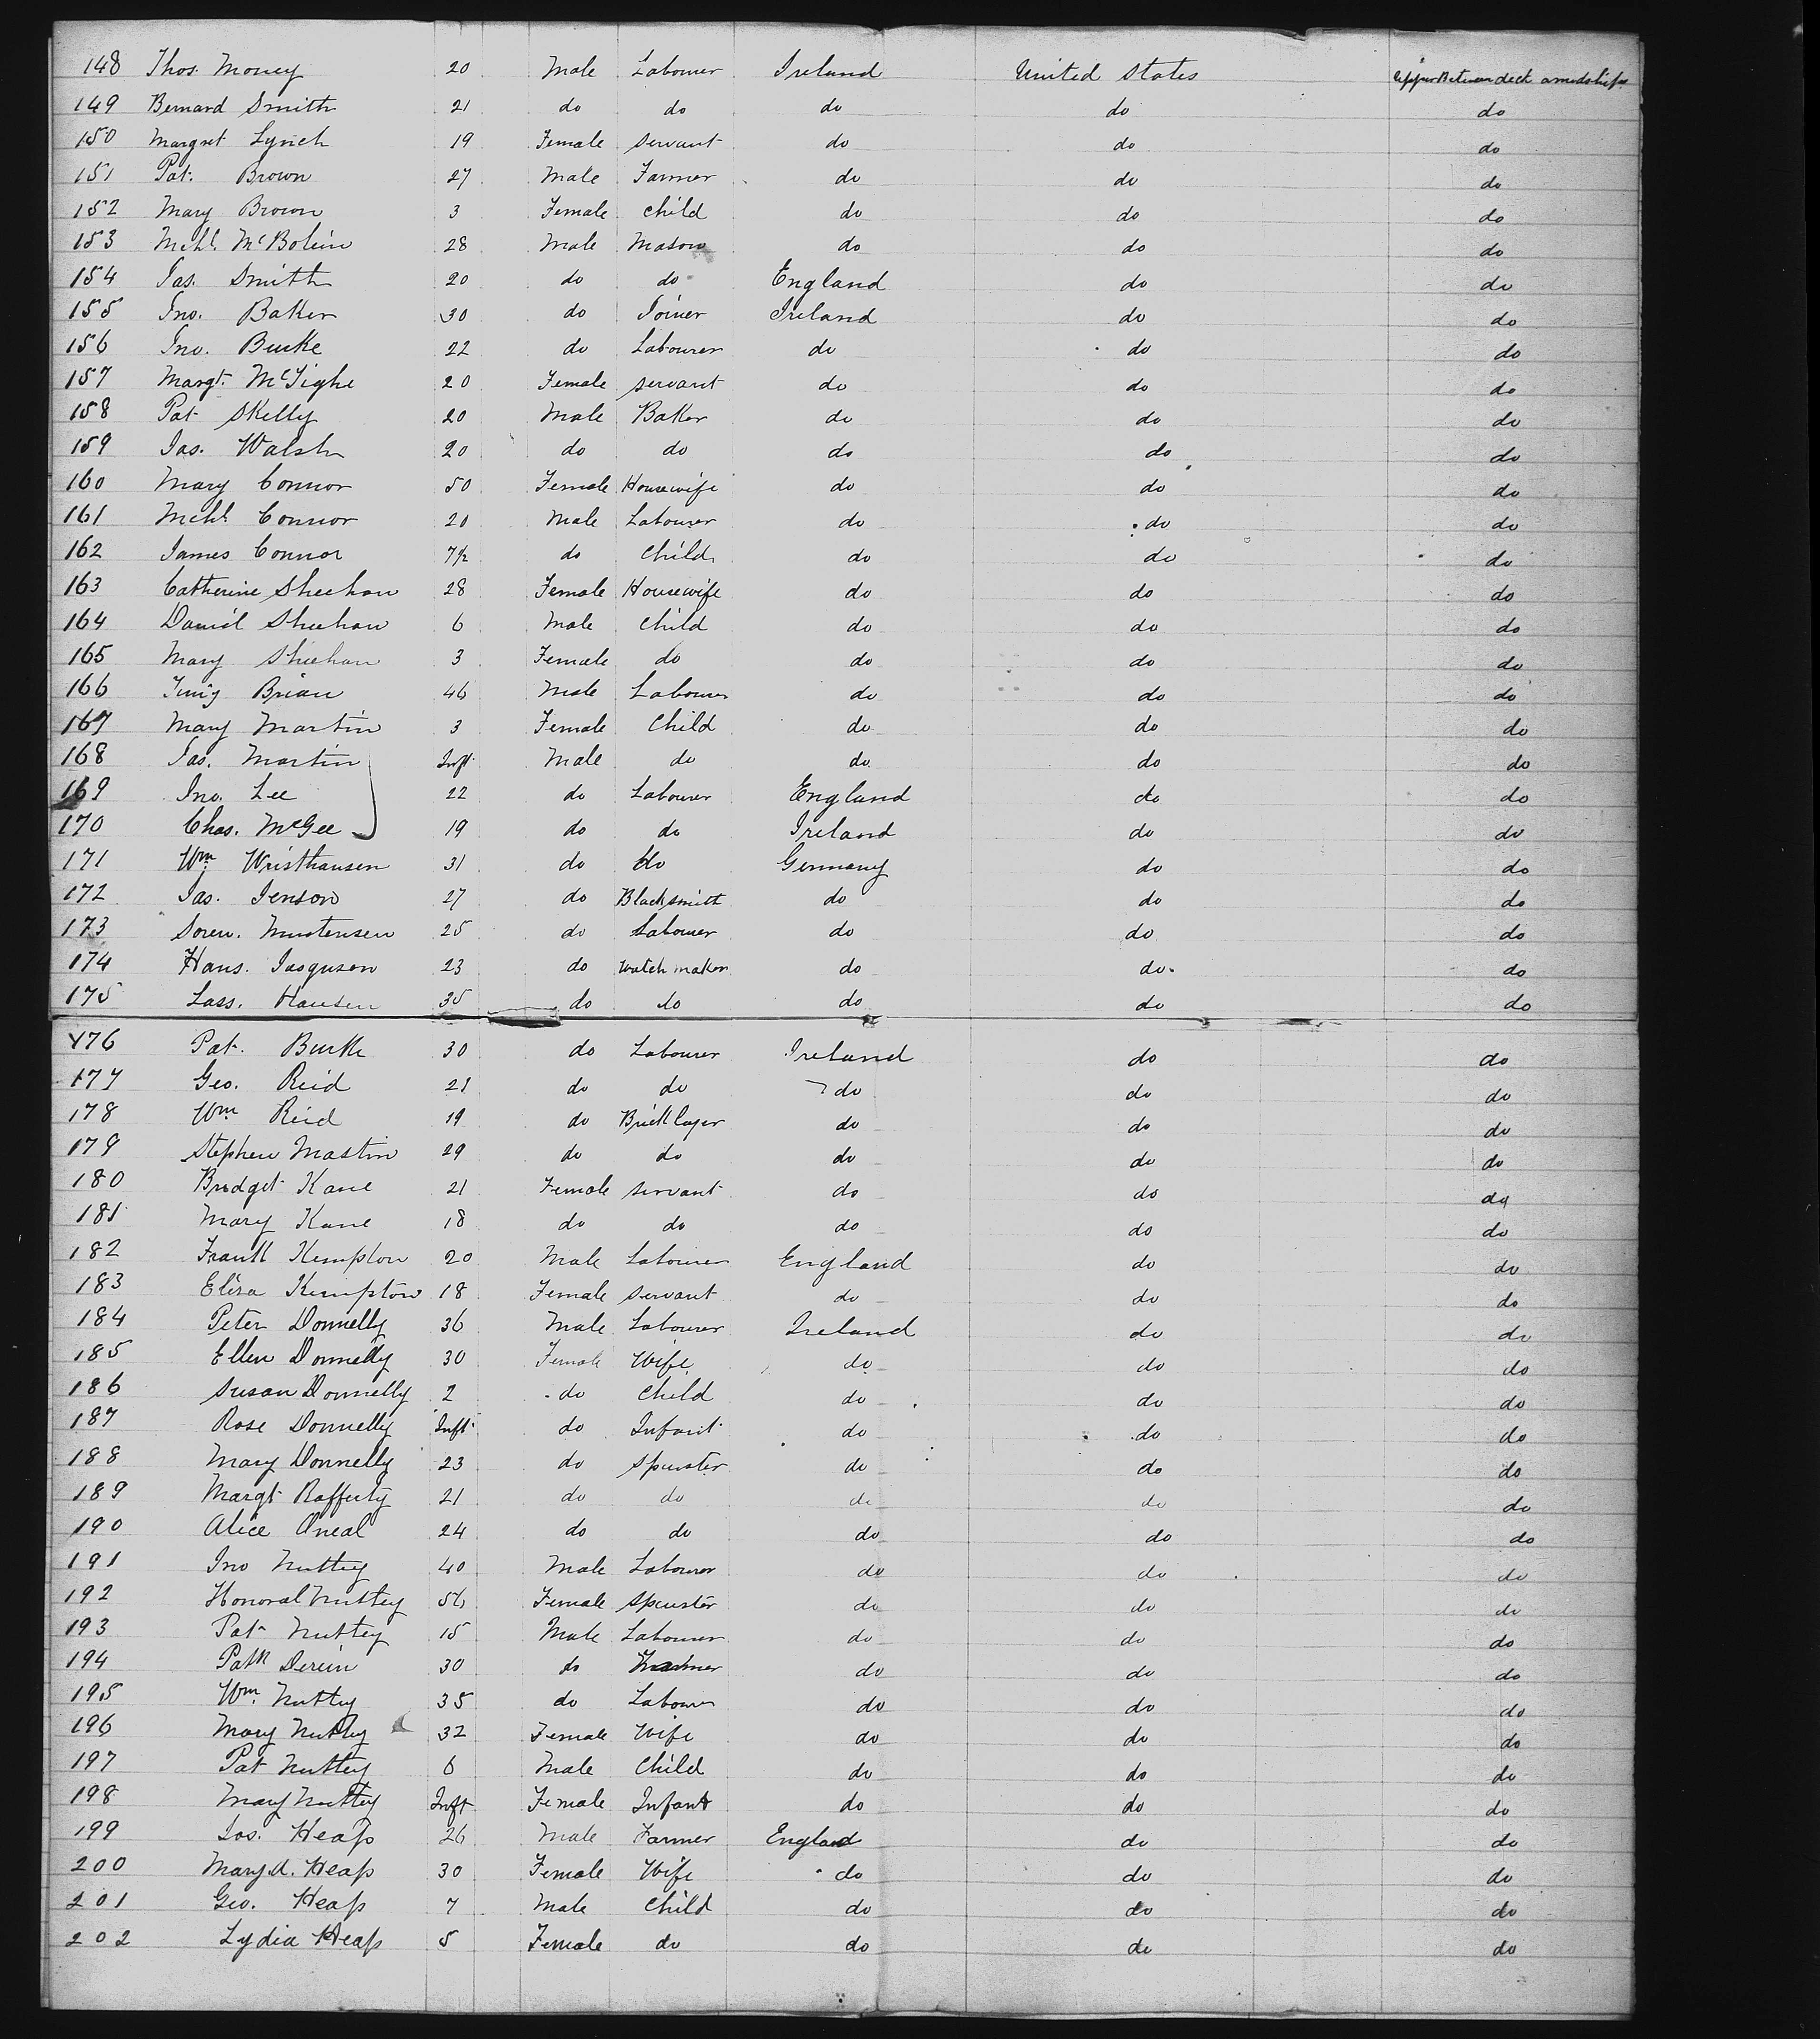 148 Thos. Money 20 Male Labourer Ireland United States Upper Between deck amidships
149 Bernard Smith 21 do do do do do
150 Margret Lynch 19 Female Servant do do do
151 Pat. Brown 27 Male Farmer do do do
152 Mary Brown 3 Female Child do do do
153 Mchl. 28 Male Mason do do do
154 Jas. Smith 20 do do England do do
155 Jno. Baker 30 do Joiner Ireland do do
156 Jno. Burke 22 do Labourer do do do
157 Margt. McTighe 20 Female Servant do do do
158 Pat Skelly 20 Male Baker do do do
159 Jas. Walsh 20 do do do do do
160 Mary Connor 50 Female Housewife do do do
161 Mchl. Connor 20 Male Labourer do do do
162 James Connor 7½ do Child do do do
163 Catherine Sheehan 28 Female Housewife do do do
164 Daniel Sheehan 6 Male Child do do do
165 Mary Sheehan 3 Female do do do do
166 Brian 46 Male Labourer do do do
167 Mary Martin 3 Female Child do do do
168 Jas. Martin Inft Male do do do do
169 Jno. Lee 22 do Labourer England do do
170 Chas. McGee 19 do do Ireland do do
171 Wm. Wristhausen 31 do do Germany do do
172 Jas. Jenson 27 do Blacksmith do do do
173 Soren. 25 do Labourer do do do
174 Hans. 23 do Watch maker do do do
175 Lass. Hansen 35 do do do do do
176 Pat. Burke 30 do Labourer Ireland do do
177 Geo. Reid 21 do do do do do
178 Wm Reid 19 do Bricklayer do do do
179 Stephen Mastin 29 do do do do do
180 Bridget Kane 21 Female Servant do do do
181 Mary Kane 18 do do do do do
182 Frank Kempton 20 Male Labourer England do do
183 Eliza Kempton 18 Female Servant do do do
184 Peter Donnelly 36 Male Labourer Ireland do do
185 Ellen Donnelly 30 Female Wife do do do
186 Susan Donnelly 2 do Child do do do
187 Rose Donnelly Inft do Infant do do do
188 Mary Donnelly 23 do Spinster do do do
189 Margt Rafferty 21 do do do do do
190 Alice Oneal 24 do do do do do
191 Jno Nuttey 40 Male Labourer do do do
192 Honoral Nuttey 56 Female Spinster do do do
193 Pat Nuttey 15 Male Labourer do do do
194 Patk 30 do do do do
195 Wm. Nuttey 35 do Labourer do do do
196 Mary Nuttey 32 Female Wife do do do
197 Pat Nuttey 6 Male Child do do do
198 Mary Nuttey Inft Female Infant do do do
199 Jos. Heap 26 Male Farmer England do do
200 Mary A. Heap 30 Female Wife do do do
201 Geo. Heap 7 Male Child do do do
202 Lydia Heap 5 Female do do do do